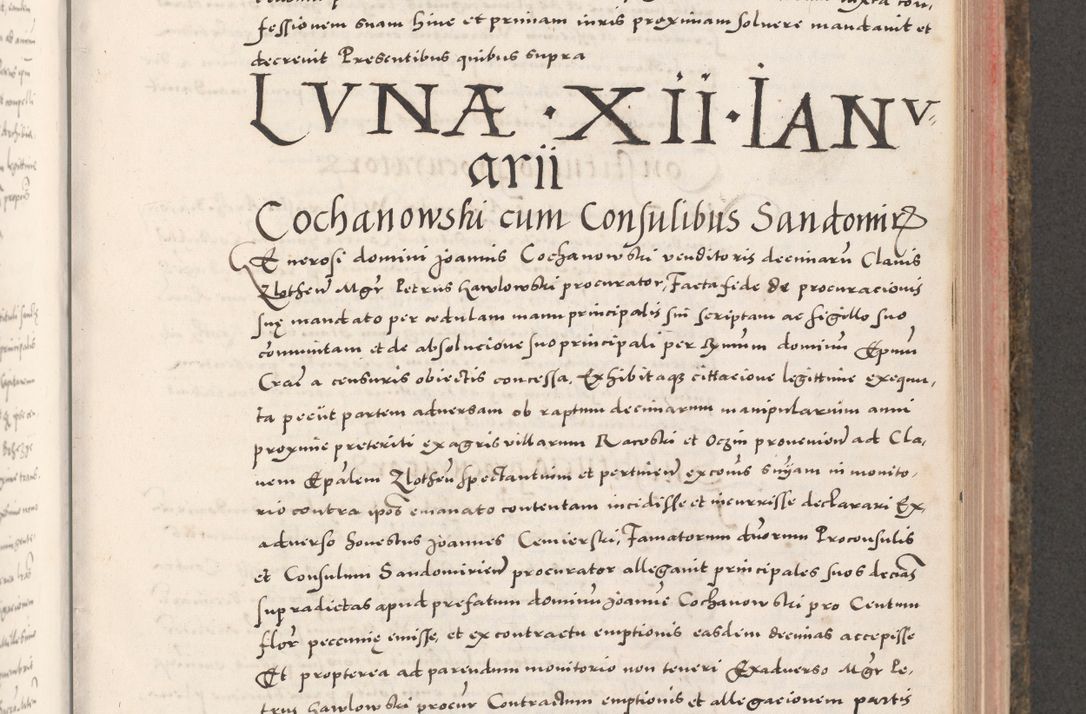 fessionem suam hinc et primam iuris proximam solvere mandavit et
decrevit Presentibus quibus supra
LVNÆ · XII · IANV-
arii
Cochanowski cum Consulibus Sandomir
Generosi domini Joannis Cochanowski venditoris decimarū Clavis
Zlothen̄ Mgr̄ Petrus Gawlowski procurator, Facta fide de procuracionis
suę mandato per cedulam manu principalis sui scriptam ac sigillo suo
communitam et de absolucione suo principali per Rmum dominum Epum
Crac̄ a censuris obiectis concessa. Exhibitaqꝫ cittacione legittime exequu-
ta peciit partem adversam ob raptum decimarum manipularium anni
proxime preteriti ex agris villarum Racoski et Oczin provenien̄ ad Cla-
vem Epālem Zlothen̄ spectantium et pertinen̄ excōis sn̄iam in monito-
rio contra ipos̄ emanato contentam incidisse et incurrisse declarari Ex-
adverso honestus Joannes Cemierski, Famatorum dn̄orum Proconsulis
et Consulum Sandomirien̄ procurator allegavit principales suos decīas
supradictas apud prefatum dominū Joannē Cochanowski pro Centum
flor̄ peccunię emisse, et ex contractu emptionis easdem decimas accepisse
Et propterea ad parendum monitorio non teneri Exadverso Mgr̄ Pe-
trus Gawlowski procur̄ Contractum emptionis et allegacionem partis